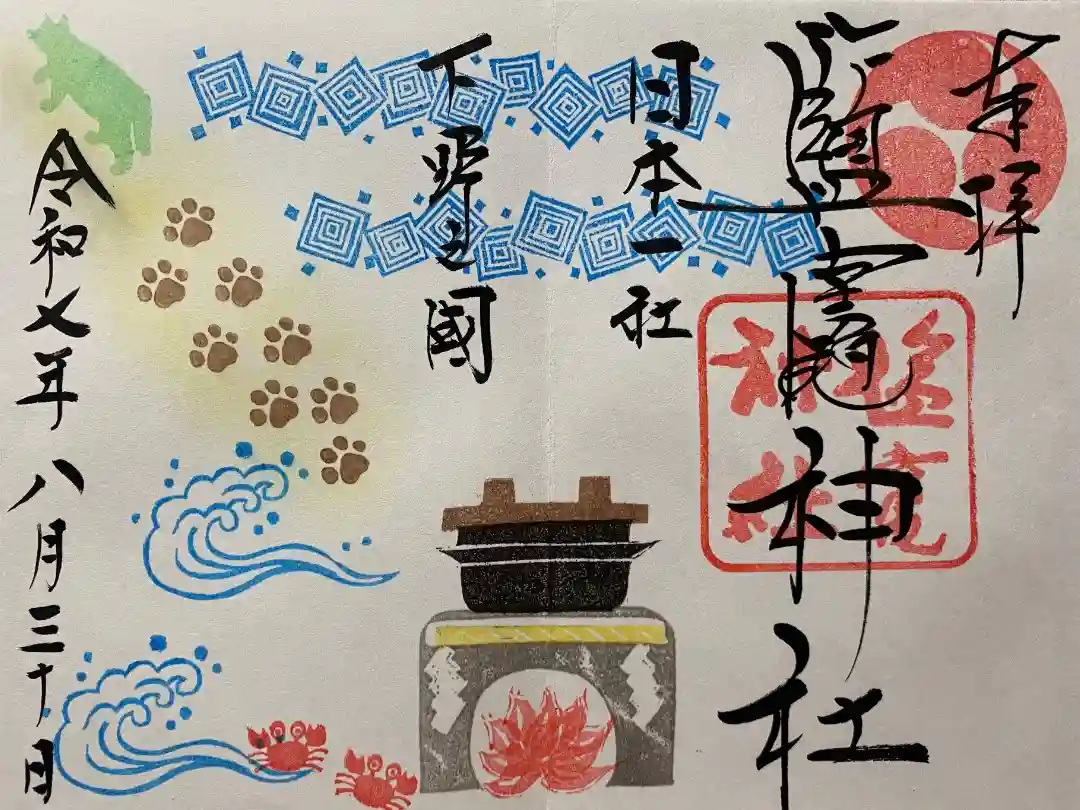 奉拝
鹽竈神社
塩竈
神社
日本一社
下野之國
令和七年八月三十日